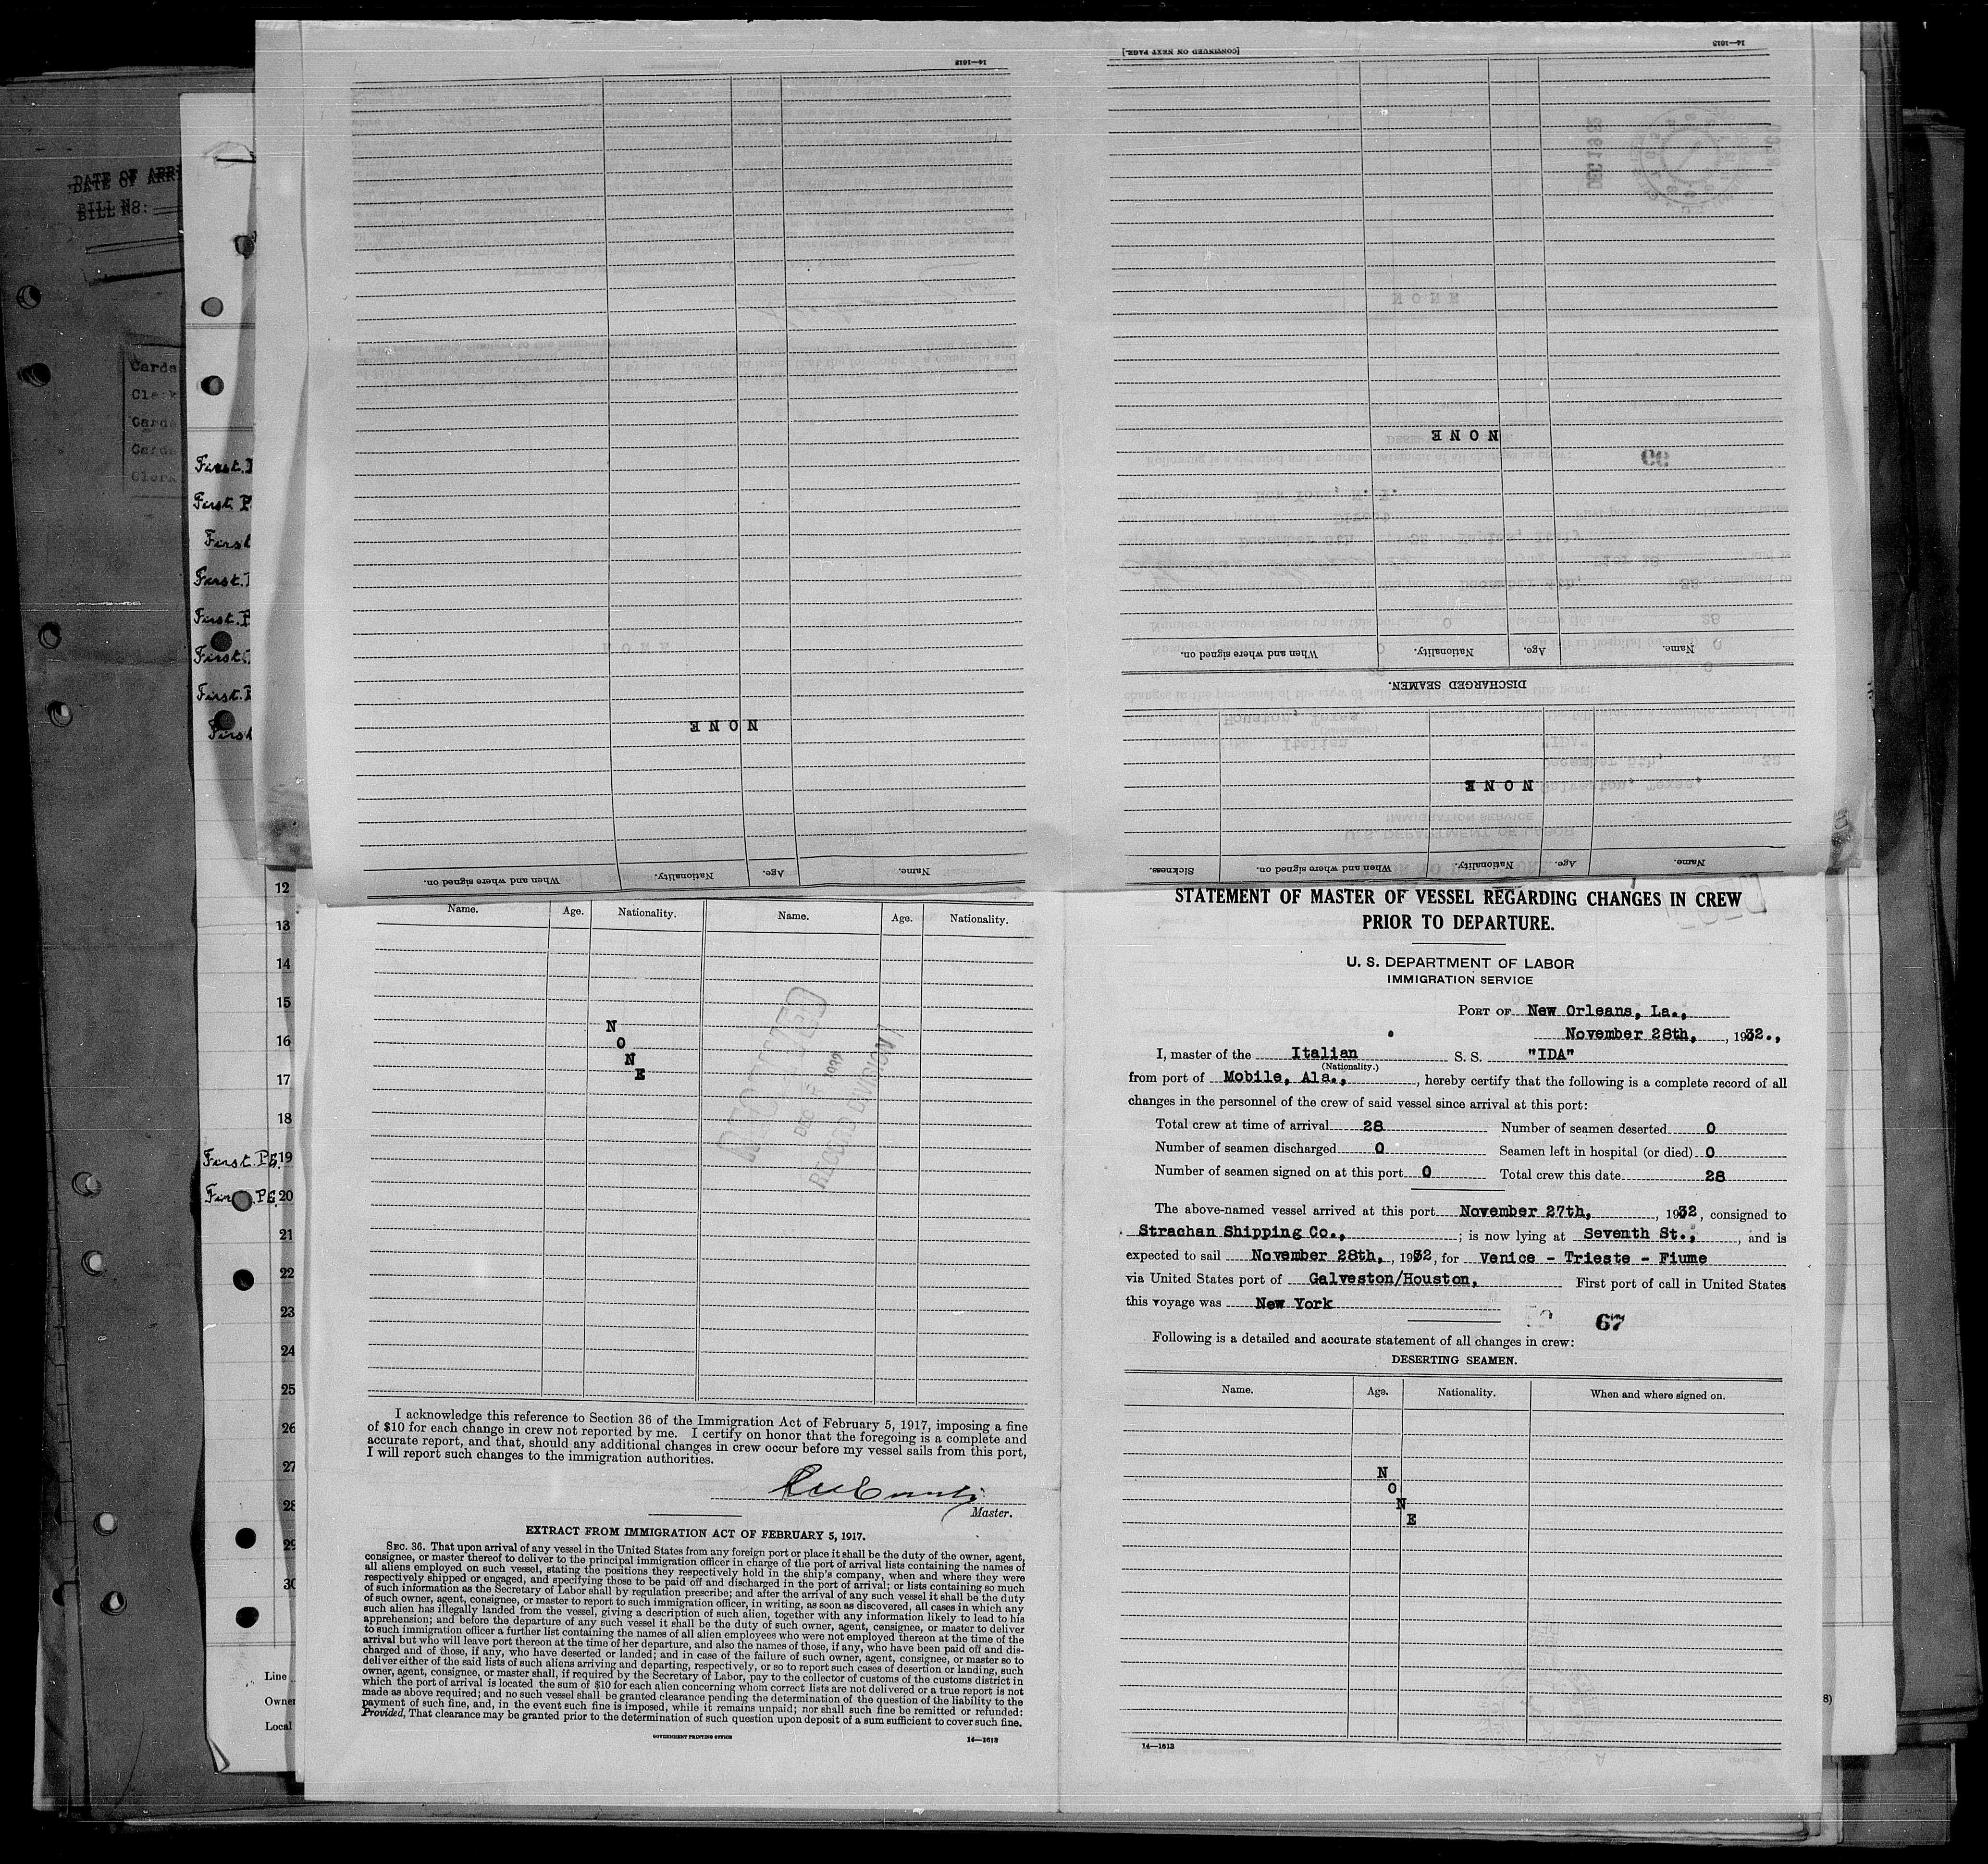 [CONTINUED ON NEXT PAGE.]
14—1613
14—1613
NONE
NONE
Name. Age. Nationality. When and where signed on.
DISCHARGED SEAMEN.
NONE
NONE
Name. Age. Nationality. When and where signed on. Sickness.
Name. Age. Nationality. When and where signed on.
DATE OF ARRI
BILL NO:
Cards
Clerk
Cards
Cards
Clerk
First.
First P
First
First.
First.P
First
First.P
First
12
13
14
15
16
17
18
First.PG. 19
First.PG. 20
21
22
23
24
25
26
27
28
29
30
Line
Owner
Local
Name. Age. Nationality. Name. Age. Nationality.
N
O
N
E
RECEIVED
DEC 1932
RECORD DIVISION
I acknowledge this reference to Section 36 of the Immigration Act of February 5, 1917, imposing a fine
of $10 for each change in crew not reported by me. I certify on honor that the foregoing is a complete and
accurate report, and that, should any additional changes in crew occur before my vessel sails from this port,
I will report such changes to the immigration authorities.
Master.
EXTRACT FROM IMMIGRATION ACT OF FEBRUARY 5, 1917.
SEC. 36. That upon arrival of any vessel in the United States from any foreign port or place it shall be the duty of the owner, agent,
consignee, or master thereof to deliver to the principal immigration officer in charge of the port of arrival lists containing the names of
all aliens employed on such vessel, stating the positions they respectively hold in the ship's company, when and where they were
respectively shipped or engaged, and specifying those to be paid off and discharged in the port of arrival; or lists containing so much
of such information as the Secretary of Labor shall by regulation prescribe; and after the arrival of any such vessel it shall be the duty
of such owner, agent, consignee, or master to report to such immigration officer, in writing, as soon as discovered, all cases in which any
such alien has illegally landed from the vessel, giving a description of such alien, together with any information likely to lead to his
apprehension; and before the departure of any such vessel it shall be the duty of such owner, agent, consignee, or master to deliver
to such immigration officer a further list containing the names of all alien employees who were not employed thereon at the time of the
arrival but who will leave port thereon at the time of her departure, and also the names of those, if any, who have been paid off and dis-
charged and of those, if any, who have deserted or landed; and in case of the failure of such owner, agent, consignee, or master so to
deliver either of the said lists of such aliens arriving and departing, respectively, or so to report such cases of desertion or landing, such
owner, agent, consignee, or master shall, if required by the Secretary of Labor, pay to the collector of customs of the customs district in
which the port of arrival is located the sum of $10 for each alien concerning whom correct lists are not delivered or a true report is not
made as above required; and no such vessel shall be granted clearance pending the determination of the question of the liability to the
payment of such fine, and, in the event such fine is imposed, while it remains unpaid; nor shall such fine be remitted or refunded:
Provided, That clearance may be granted prior to the determination of such question upon deposit of a sum sufficient to cover such fine.
GOVERNMENT PRINTING OFFICE 14—1613
STATEMENT OF MASTER OF VESSEL REGARDING CHANGES IN CREW
PRIOR TO DEPARTURE.
U. S. DEPARTMENT OF LABOR
IMMIGRATION SERVICE
PORT OF New Orleans, La.,
November 28th, , 1932.,
I, master of the Italian S. S. "IDA"
(Nationality.)
from port of Mobile, Ala., , hereby certify that the following is a complete record of all
changes in the personnel of the crew of said vessel since arrival at this port:
Total crew at time of arrival 28 Number of seamen deserted 0
Number of seamen discharged 0 Seamen left in hospital (or died) 0
Number of seamen signed on at this port 0 Total crew this date 28
The above-named vessel arrived at this port November 27th, , 1932, consigned to
Strachan Shipping Co., ; is now lying at Seventh St., , and is
expected to sail November 28th, , 1932, for Venice - Trieste - Fiume
via United States port of Galveston/Houston, First port of call in United States
this voyage was New York
67
Following is a detailed and accurate statement of all changes in crew:
DESERTING SEAMEN.
Name. Age. Nationality. When and where signed on.
N
O
N
E
14—1613
8)